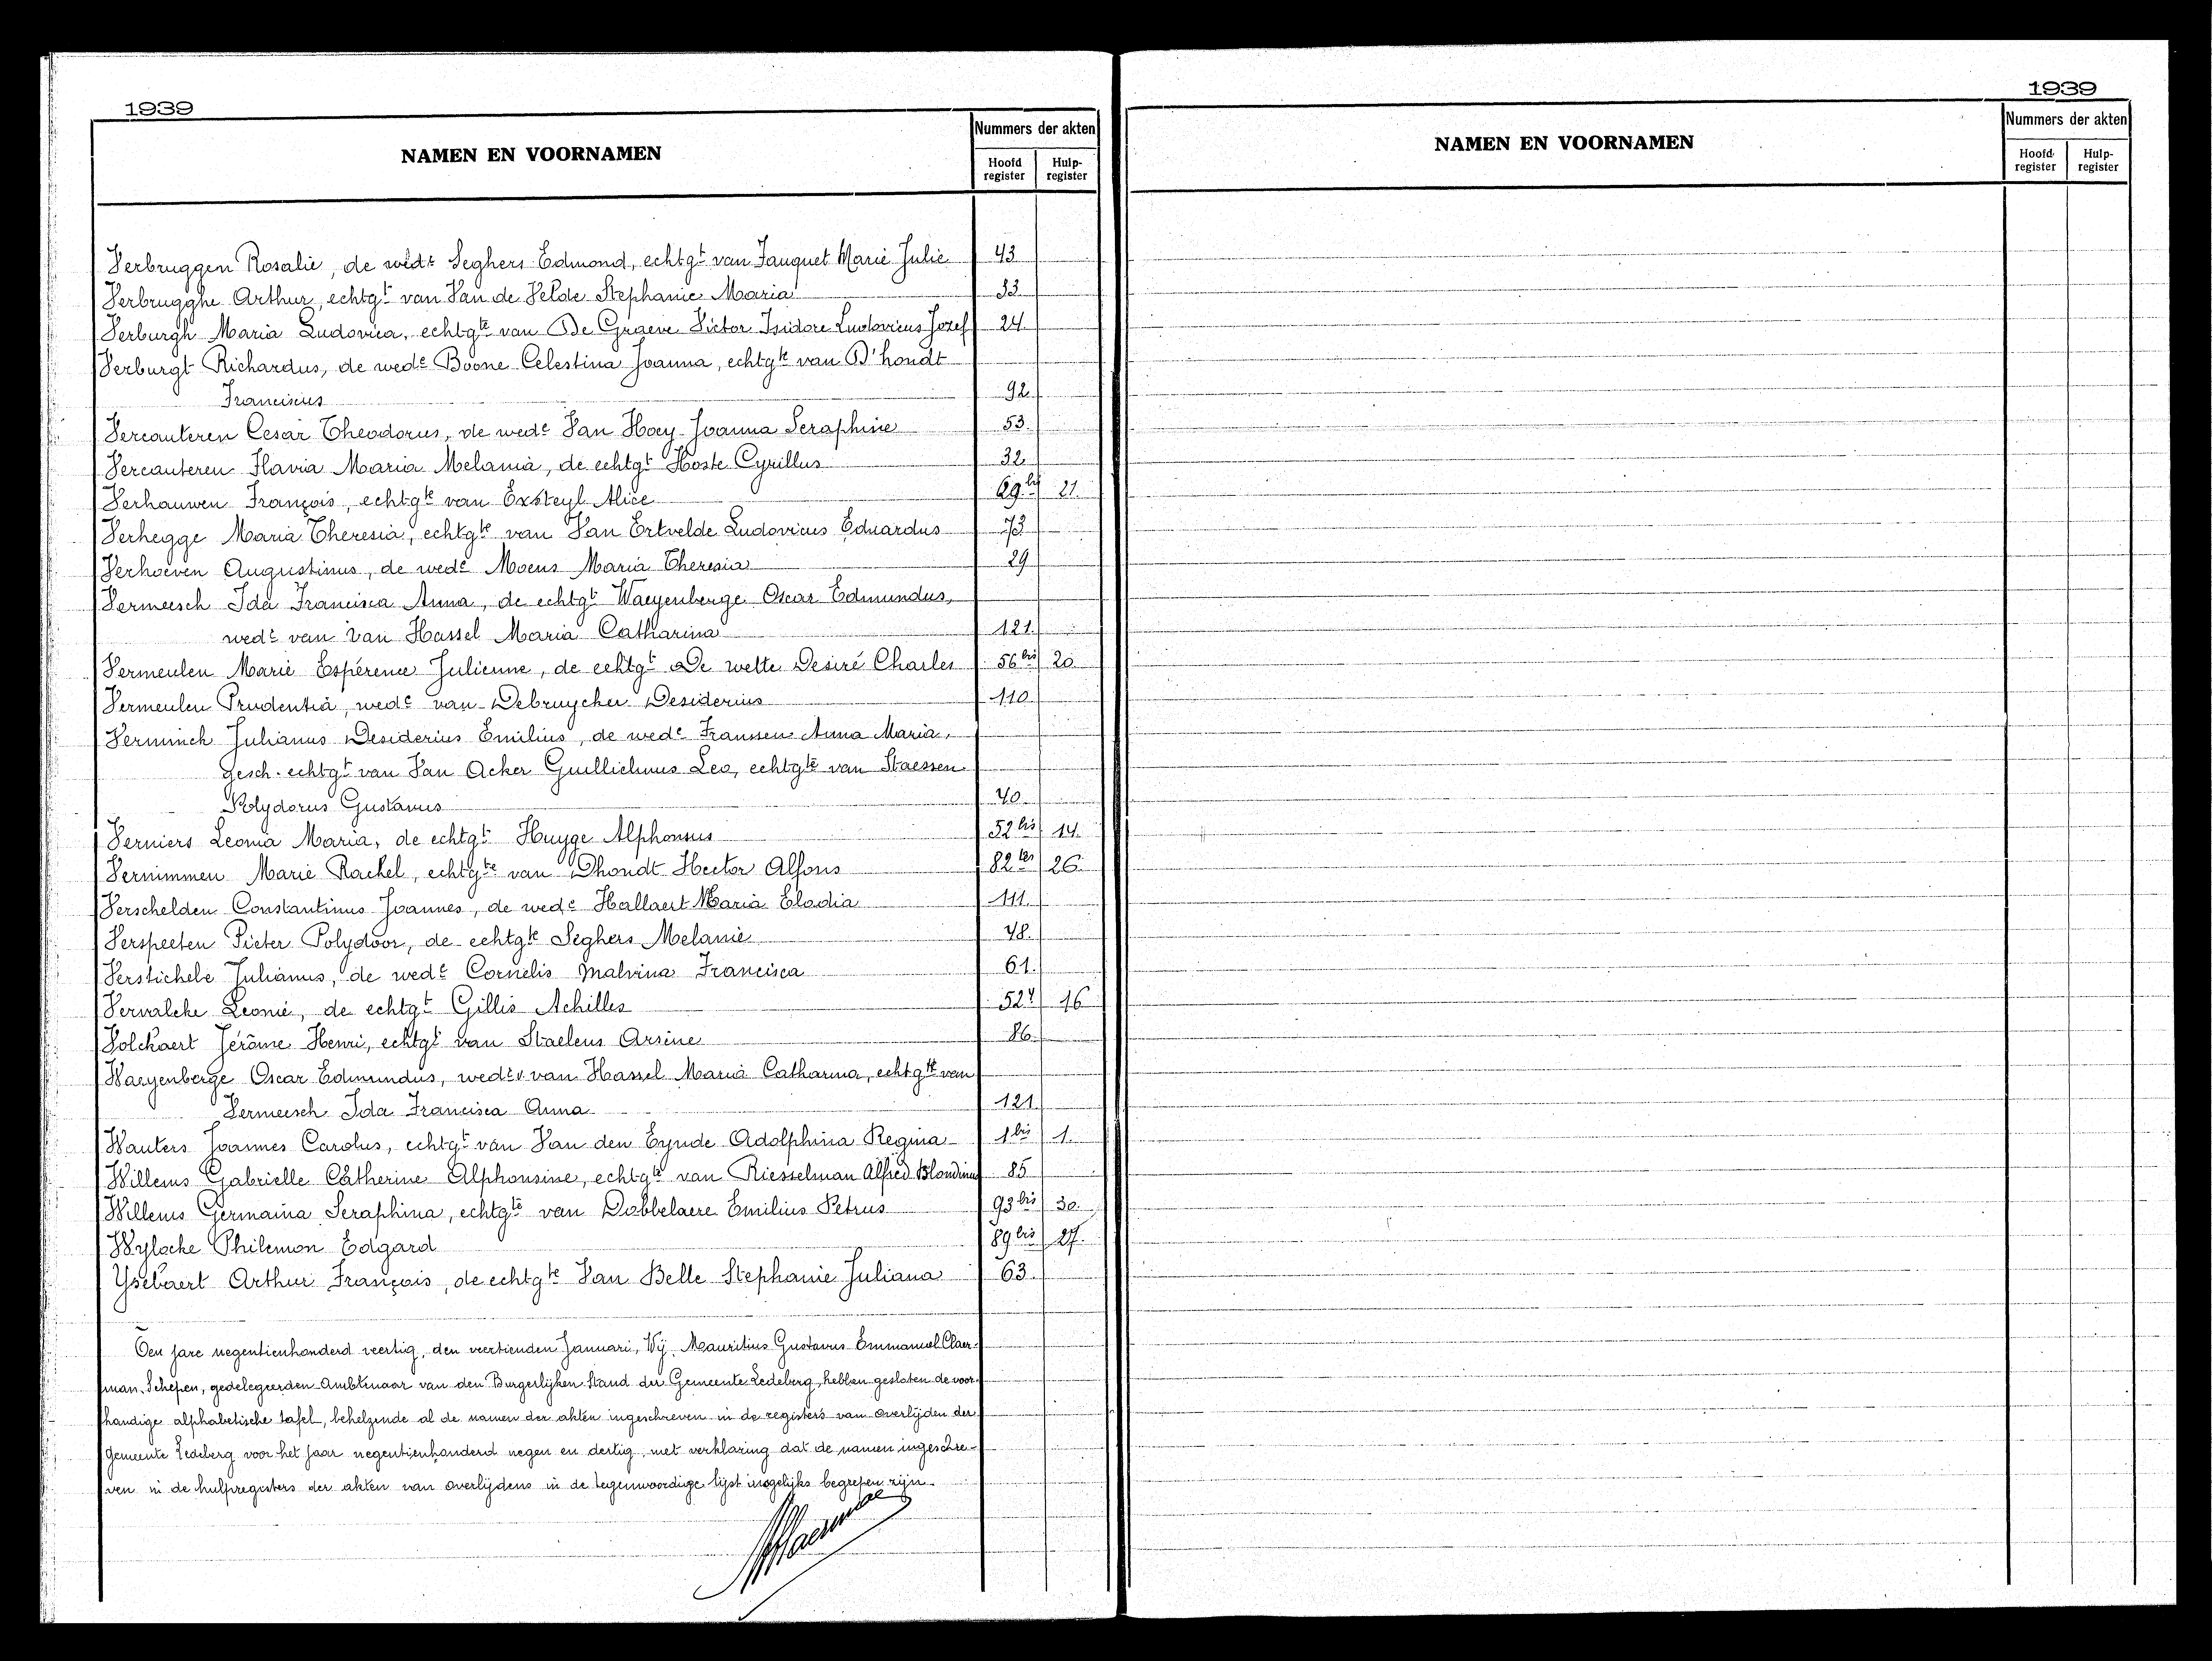 1939
NAMEN EN VOORNAMEN
Nummers der akten
Hoofd register
Hulp-register
Verbruggen Rosalie, de wede Seghers Edmond, echtgt van Fauquet Marie Julie 43
Verbrugghe Arthur, echtgt van Van de Velde Stephanie Maria 33
Verburgh Maria Ludovica, echtgte van De Graeve Victor Isidore Ludovicus Jozef 24
Verburgt Richardus, de wede Boone Celestina Joanna, echtgte van D'hondt
Franciscus 92
Vercauteren Cesar Theodorus, de wede Van Hoey Joanna Seraphine 53
Vercauteren Flavia Maria Melania, de echtgt Hoste Cyrillus 32
Verhauwen François, echtgte van Exsteyl Alice 69bis 21
Verhegge Maria Theresia, echtgte van Van Ertvelde Ludovicus Eduardus 73
Verhoeven Augustinus, de wede Moens Maria Theresia 29
Vermeesch Ida Francisca Anna, de echtgt Waeyenberge Oscar Edmundus,
wedr van Van Hassel Maria Catharina 121
Vermeulen Marie Espérence Julienne, de echtgt De wette Desiré Charles 56bis 20
Vermeulen Prudentia, wede van Debruycker Desiderius 110
Vermınck Julianus Desiderius Emilius, de wede Franssen Anna Maria,
gesch. echtgt van Van Acker Guillielmus Leo, echtgte van Staessen
Polydorus Gustavus 40
Verniers Leonia Maria, de echtgt Huyge Alphonsus 52bis 14
Vernimmen Marie Rachel, echtgte van Dhondt Hector Alfons 82ter 26
Verschelden Constantinus Joannes, de wede Hallaert Maria Elodia 111
Verspeeten Pieter Polydoor, de echtgte Seghers Melanie 48
Verstichele Julianus, de wede Cornelis Malvina Francisca 61
Vervalcke Leonie, de echtgt Gillis Achilles 524 16
Volckaert Jérôme Henri, echtgt van Staelens Arsène 86
Waeyenberge Oscar Edmundus, wedr v. van Hassel Maria Catharina, echtgte van
Vermeesch Ida Francisca Anna 121
Wauters Joannes Carolus, echtgt van Van den Eynde Adolphina Regina 1bis 1
Willems Gabrielle Catherine Alphonsine, echtgte van Riesselman Alfred Blondinus 85
Willems Germaina Seraphina, echtgte van Dobbelaere Emilius Petrus 93bis 30
Wylocke Philemon Edgard 89bis 27
Ysebaert Arthur François, de echtgte Van Belle Stephanie Juliana 63
Ten jare negentienhonderd veertig, den veertienden Januari, Wij Mauritius Gustavus Emmanuel Claer-
man, Schepen, gedelegeerden Ambtenaar van den Burgerlijken Stand der Gemeente Ledeberg, hebben gesloten de voor-
handige alphabetische tafel, behelzende al de namen der akten ingeschreven in de registers van overlijden der
Gemeente Ledeberg voor het jaar negentienhonderd negen en dertig, met verklaring dat de namen ingeschre-
ven in de hulpregisters der akten van overlijdens in de tegenwoordige lijst insgelijks begrepen zijn.
1939
NAMEN EN VOORNAMEN
Nummers der akten
Hoofd-register
Hulp-register